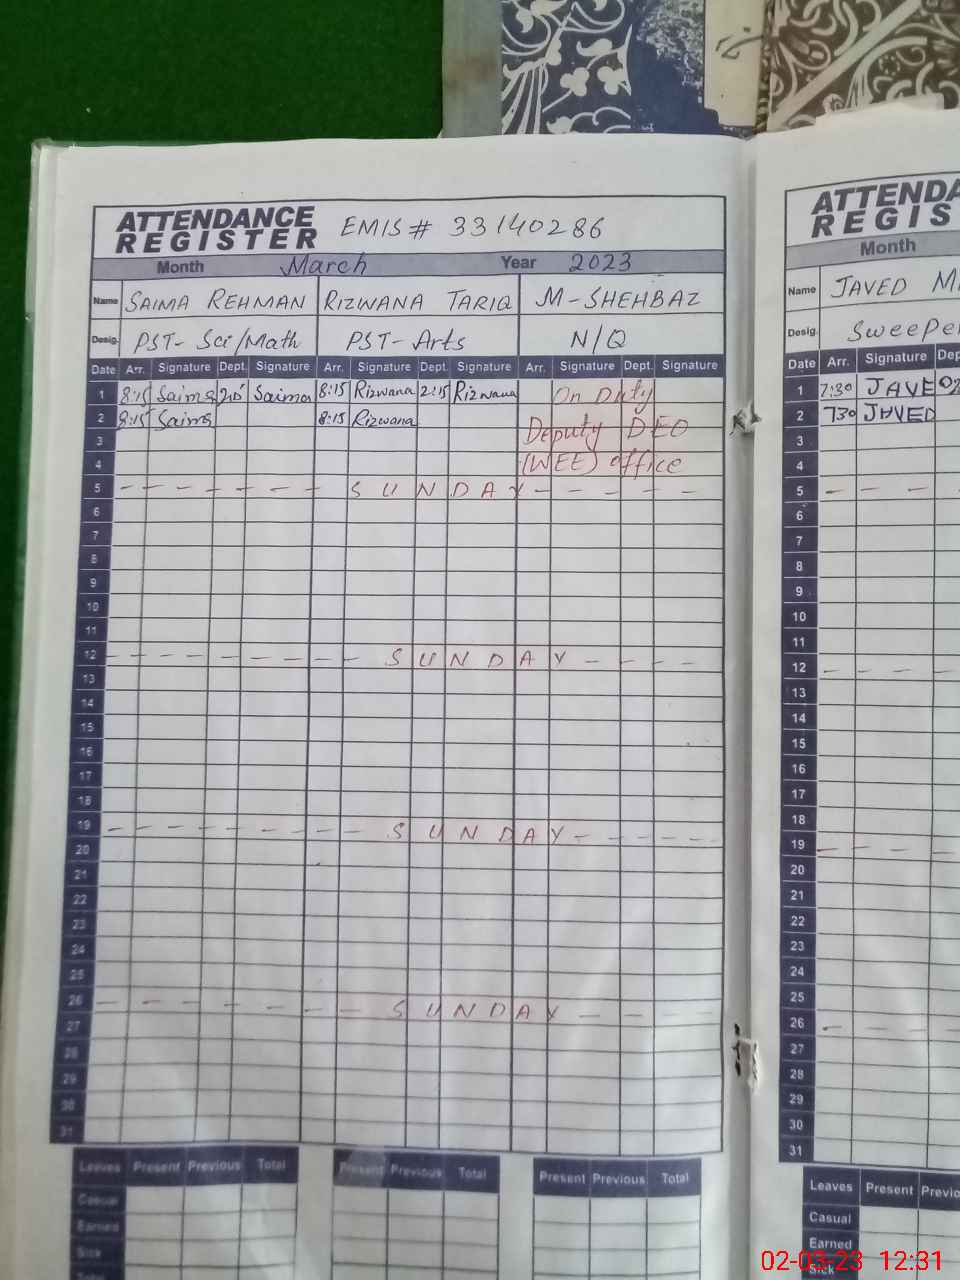 ATTENDANCE REGISTER EMIS# 33140286
Month March Year 2023
Name SAIMA REHMAN RIZWANA TARIQ M-SHEHBAZ
Desig. PST- Sci/Math PST- Arts N/Q
Date Arr. Signature Dept. Signature Arr. Signature Dept. Signature Arr. Signature Dept. Signature
1 8:15 Saima Saima 8:15 Rizwana 2:15 Rizwana On Duty
2 8:15 Saima 8:15 Rizwana Deputy DEO
3
4 (WEE) office
5 SUNDAY
6
7
8
9
10
11
12 SUNDAY
13
14
15
16
17
18
19 SUNDAY
20
21
22
23
24
25
26 SUNDAY
27
28
29
30
31
Leaves Present Previous Total Present Previous Total Present Previous Total
Casual
Earned
Sick
ATTENDA
REGIS
Month
Name JAVED M
Desig. Sweepe
Date Arr. Signature Dep
1 7:30 JAVE
2 730 JAVED
3
4
5
6
7
8
9
10
11
12
13
14
15
16
17
18
19
20
21
22
23
24
25
26
27
28
29
30
31
Leaves Present Previo
Casual
Earned
Sick
02-03-23 12:31